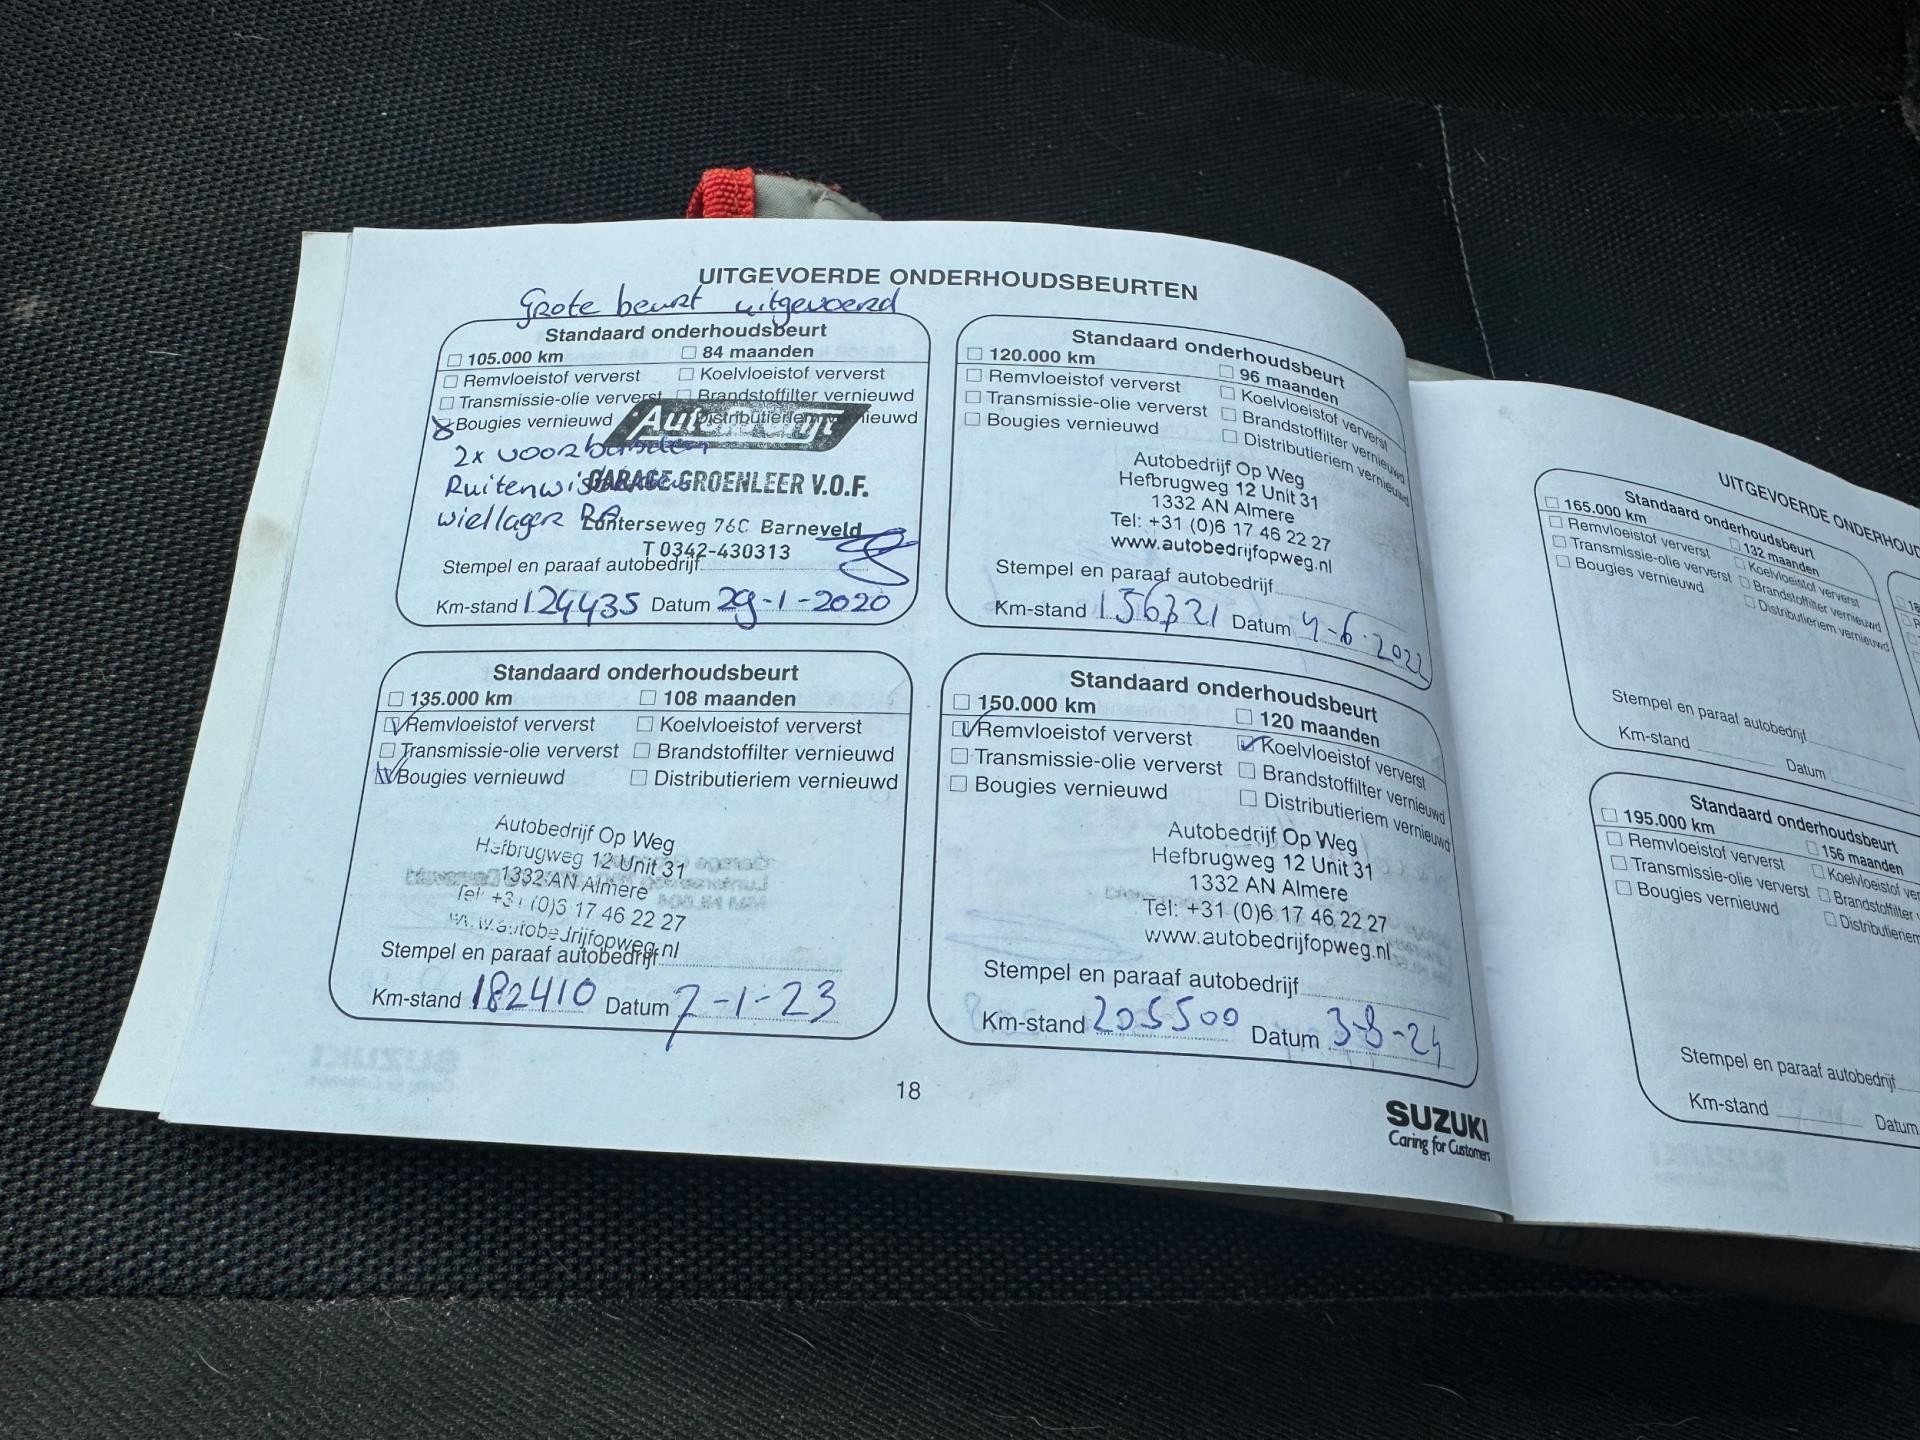 UITGEVOERDE ONDERHOUDSBEURTEN
Grote beurt uitgevoerd
Standaard onderhoudsbeurt
105.000 km 84 maanden
Remvloeistof ververst Koelvloeistof ververst
Transmissie-olie ververst Brandstoffilter vernieuwd
Bougies vernieuwd Distributieriem vernieuwd
2x voorbanden
Ruitenwissers
GARAGE GROENLEER V.O.F.
wiellager RA
Lunterseweg 76C Barneveld
T 0342-430313
Stempel en paraaf autobedrijf
Km-stand 124435 Datum 29-1-2020
Standaard onderhoudsbeurt
120.000 km 96 maanden
Remvloeistof ververst Koelvloeistof ververst
Transmissie-olie ververst Brandstoffilter vernieuwd
Bougies vernieuwd Distributieriem vernieuwd
Autobedrijf Op Weg
Hefbrugweg 12 Unit 31
1332 AN Almere
Tel: +31 (0)6 17 46 22 27
www.autobedrijfopweg.nl
Stempel en paraaf autobedrijf
Km-stand Datum 4-6-2022
Standaard onderhoudsbeurt
135.000 km 108 maanden
Remvloeistof ververst Koelvloeistof ververst
Transmissie-olie ververst Brandstoffilter vernieuwd
Bougies vernieuwd Distributieriem vernieuwd
Autobedrijf Op Weg
Hefbrugweg 12 Unit 31
1332 AN Almere
Tel: +31 (0)6 17 46 22 27
www.autobedrijfopweg.nl
Stempel en paraaf autobedrijf
Km-stand 182410 Datum 7-1-23
Standaard onderhoudsbeurt
150.000 km 120 maanden
Remvloeistof ververst Koelvloeistof ververst
Transmissie-olie ververst Brandstoffilter vernieuwd
Bougies vernieuwd Distributieriem vernieuwd
Autobedrijf Op Weg
Hefbrugweg 12 Unit 31
1332 AN Almere
Tel: +31 (0)6 17 46 22 27
www.autobedrijfopweg.nl
Stempel en paraaf autobedrijf
Km-stand 205500 Datum 3-8-24
18
SUZUKI
Caring for Customers
UITGEVOERDE ONDERHOUD
Standaard onderhoudsbeurt
165.000 km 132 maanden
Remvloeistof ververst Koelvloeistof ververst
Transmissie-olie ververst Brandstoffilter vernieuwd
Bougies vernieuwd Distributieriem vernieuwd
Stempel en paraaf autobedrijf
Km-stand Datum
Standaard onderhoudsbeurt
195.000 km 156 maanden
Remvloeistof ververst Koelvloeistof ver
Transmissie-olie ververst Brandstoffilter
Bougies vernieuwd Distributieriem
Stempel en paraaf autobedrijf
Km-stand Datum